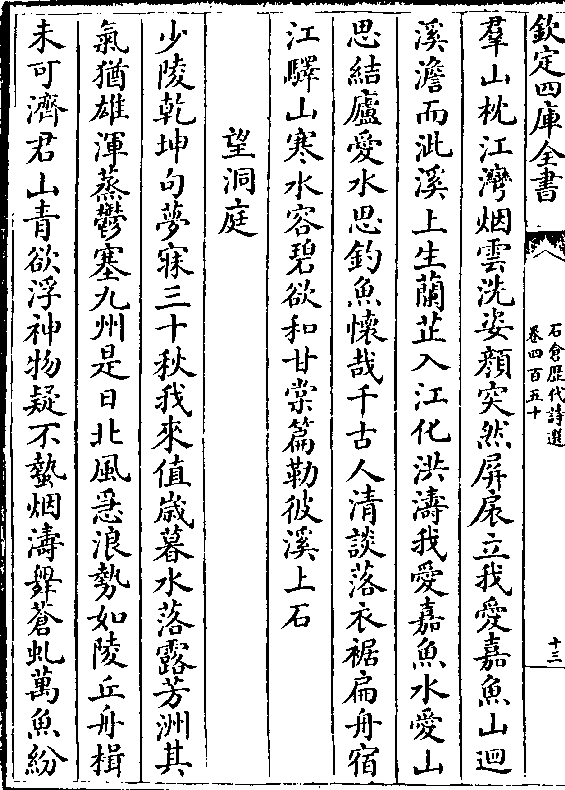 欽定四庫全書
石倉歴代詩選
卷四百五十
十三
羣山枕江灣烟雲洗姿顔突然屏扆立我愛嘉魚山迴
溪澹而泚溪上生蘭芷入江化洪濤我愛嘉魚水愛山
思結廬愛水思釣魚懷哉千古人清談落衣裾扁舟宿
江驛山寒水容碧欲和甘棠篇勒彼溪上石
望洞庭
少陵乾坤句夢寐三十秋我來值歲暮水落露芳洲其
氣猶雄渾蒸鬱塞九州是日北風急浪勢如陵丘舟楫
未可濟君山青欲浮神物疑不蟄烟濤舞蒼虬萬魚紛